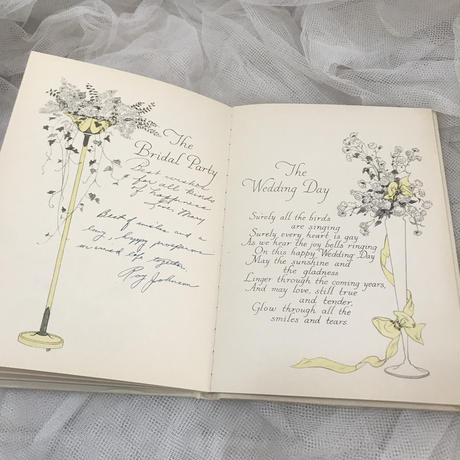 The
Bridal Party
Best wishes
for all kinds
of happiness
from Mary
Best of wishes and a
long, happy, prosperous
married life together.
Roy Johnson
The
Wedding Day
Surely all the birds
are singing
Surely every heart is gay
As we hear the joy bells ringing
On this happy Wedding Day
May the sunshine and
the gladness
Linger through the coming years,
And may love, still true
and tender,
Glow through all the
smiles and tears